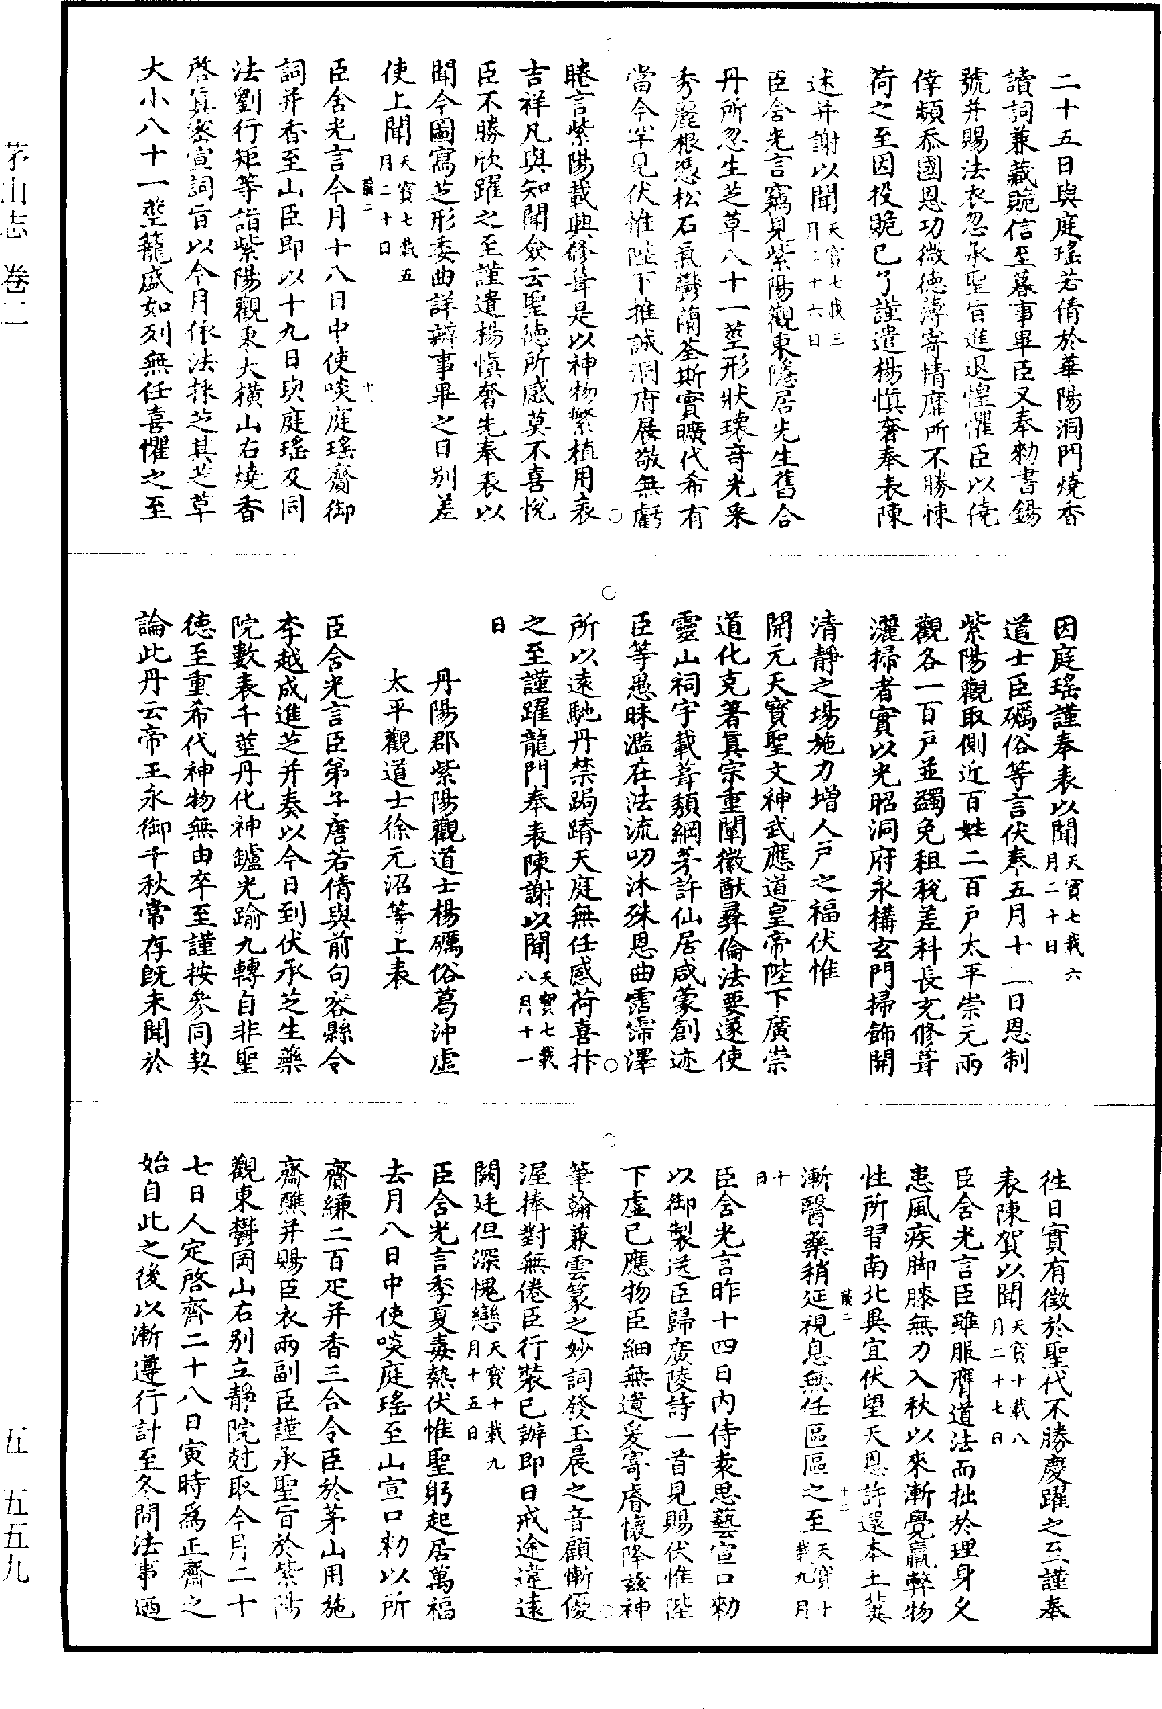 二十五日與庭瑤若倩於華陽洞門燒香
讀詞兼藏貺信至暮事畢臣又奉勑書錫
號并賜法衣忽承聖旨進退惶懼臣以僥
倖頻忝國恩功微德薄寄情靡所不勝悚
荷之至因投貺已了謹遣楊慎奢奉表陳
述并謝以聞天寶七載三月二十六日
臣含光言竊見紫陽觀東隱居先生舊合
丹所忽生芝草八十一莖形狀瓌奇光釆
秀麗根憑松石氣鬱蘭荃斯實曠代希有
當今罕見伏惟陛下推誠洞府展敬無虧
睠言紫陽載興修葺是以神物繁植用表
吉祥凡與知聞僉云聖德所感莫不喜悅
臣不勝欣躍之至謹遣楊慎奢先奉表以
聞今圖寫芝形委曲詳辯事畢之日別差
使上聞天寶七載五月二十日
臣含光言今月十八日中使啖庭瑤齎御
詞并香至山臣即以十九日與庭瑤及同
法劉行矩等詣紫陽觀東大橫山右燒香
啓眞密宣詞旨以今月依法採芝其芝草
大小八十一莖籠盛如列無任喜懼之至
因庭瑤謹奉表以聞天寶七載六月二十日
道士臣礪俗等言伏奉五月十一日恩制
紫陽觀取側近百姓二百戶太平崇元兩
觀各一百戶並蠲免租稅差科長充修葺
灑掃者實以光昭洞府永構玄門掃飾開
清靜之場施力增人戶之福伏惟
開元天寶聖文神武應道皇帝陛下廣崇
道化克著眞宗重闡徽猷彞倫法要遂使
靈山祠宇載葺頹綱茅許仙居咸蒙創迹
臣等愚昧濫在法流叨沐殊恩曲霑濡澤
所以遠馳丹禁跼蹐天庭無任感荷喜抃
之至謹躍龍門奉表陳謝以聞天寶七載八月十一
日
丹陽郡紫陽觀道士楊礪俗葛沖虛
太平觀道士徐元沼等上表
臣含光言臣弟子唐若倩與前句容縣令
李越成進芝并奏以今日到伏承芝生藥
院數表千莖丹化神鑪光踰九轉自非聖
德至重希代神物無由卒至謹按參同契
論此丹云帝王永御千秋常存旣未聞於
徃日實有徵於聖代不勝慶躍之至謹奉
表陳賀以聞天寶十載八月二十七日
臣含光言臣雖服膺道法而拙於理身久
患風疾脚膝無力入秋以來漸覺羸弊物
性所習南北異宜伏望天恩許還本土冀
漸醫藥稍延視息無任區區之至天寶十載九月
十日
臣含光言昨十四日內侍袁思藝宣口勑
以御製送臣歸廣陵詩一首見賜伏惟陛
下虛己應物臣細無遺爰寄睿懷降茲神
筆翰兼雲篆之妙詞發玉晨之音顧慚優
渥捧對無倦臣行裝已辦即日戒途違遠
闕廷但深愧戀天寶十載九月十五日
臣含光言季夏毒熱伏惟聖躬起居萬福
去月八日中使啖庭瑤至山宣口勑以所
齋縑二百疋并香三合令臣於茅山用施
齋醮并賜臣衣兩副臣謹承聖旨於紫陽
觀東鬱岡山右別立靜院尅取今月二十
七日人定啓齋二十八日寅時爲正齋之
始自此之後以漸遵行計至冬間法事迺
茅山志　卷二
五　五五九